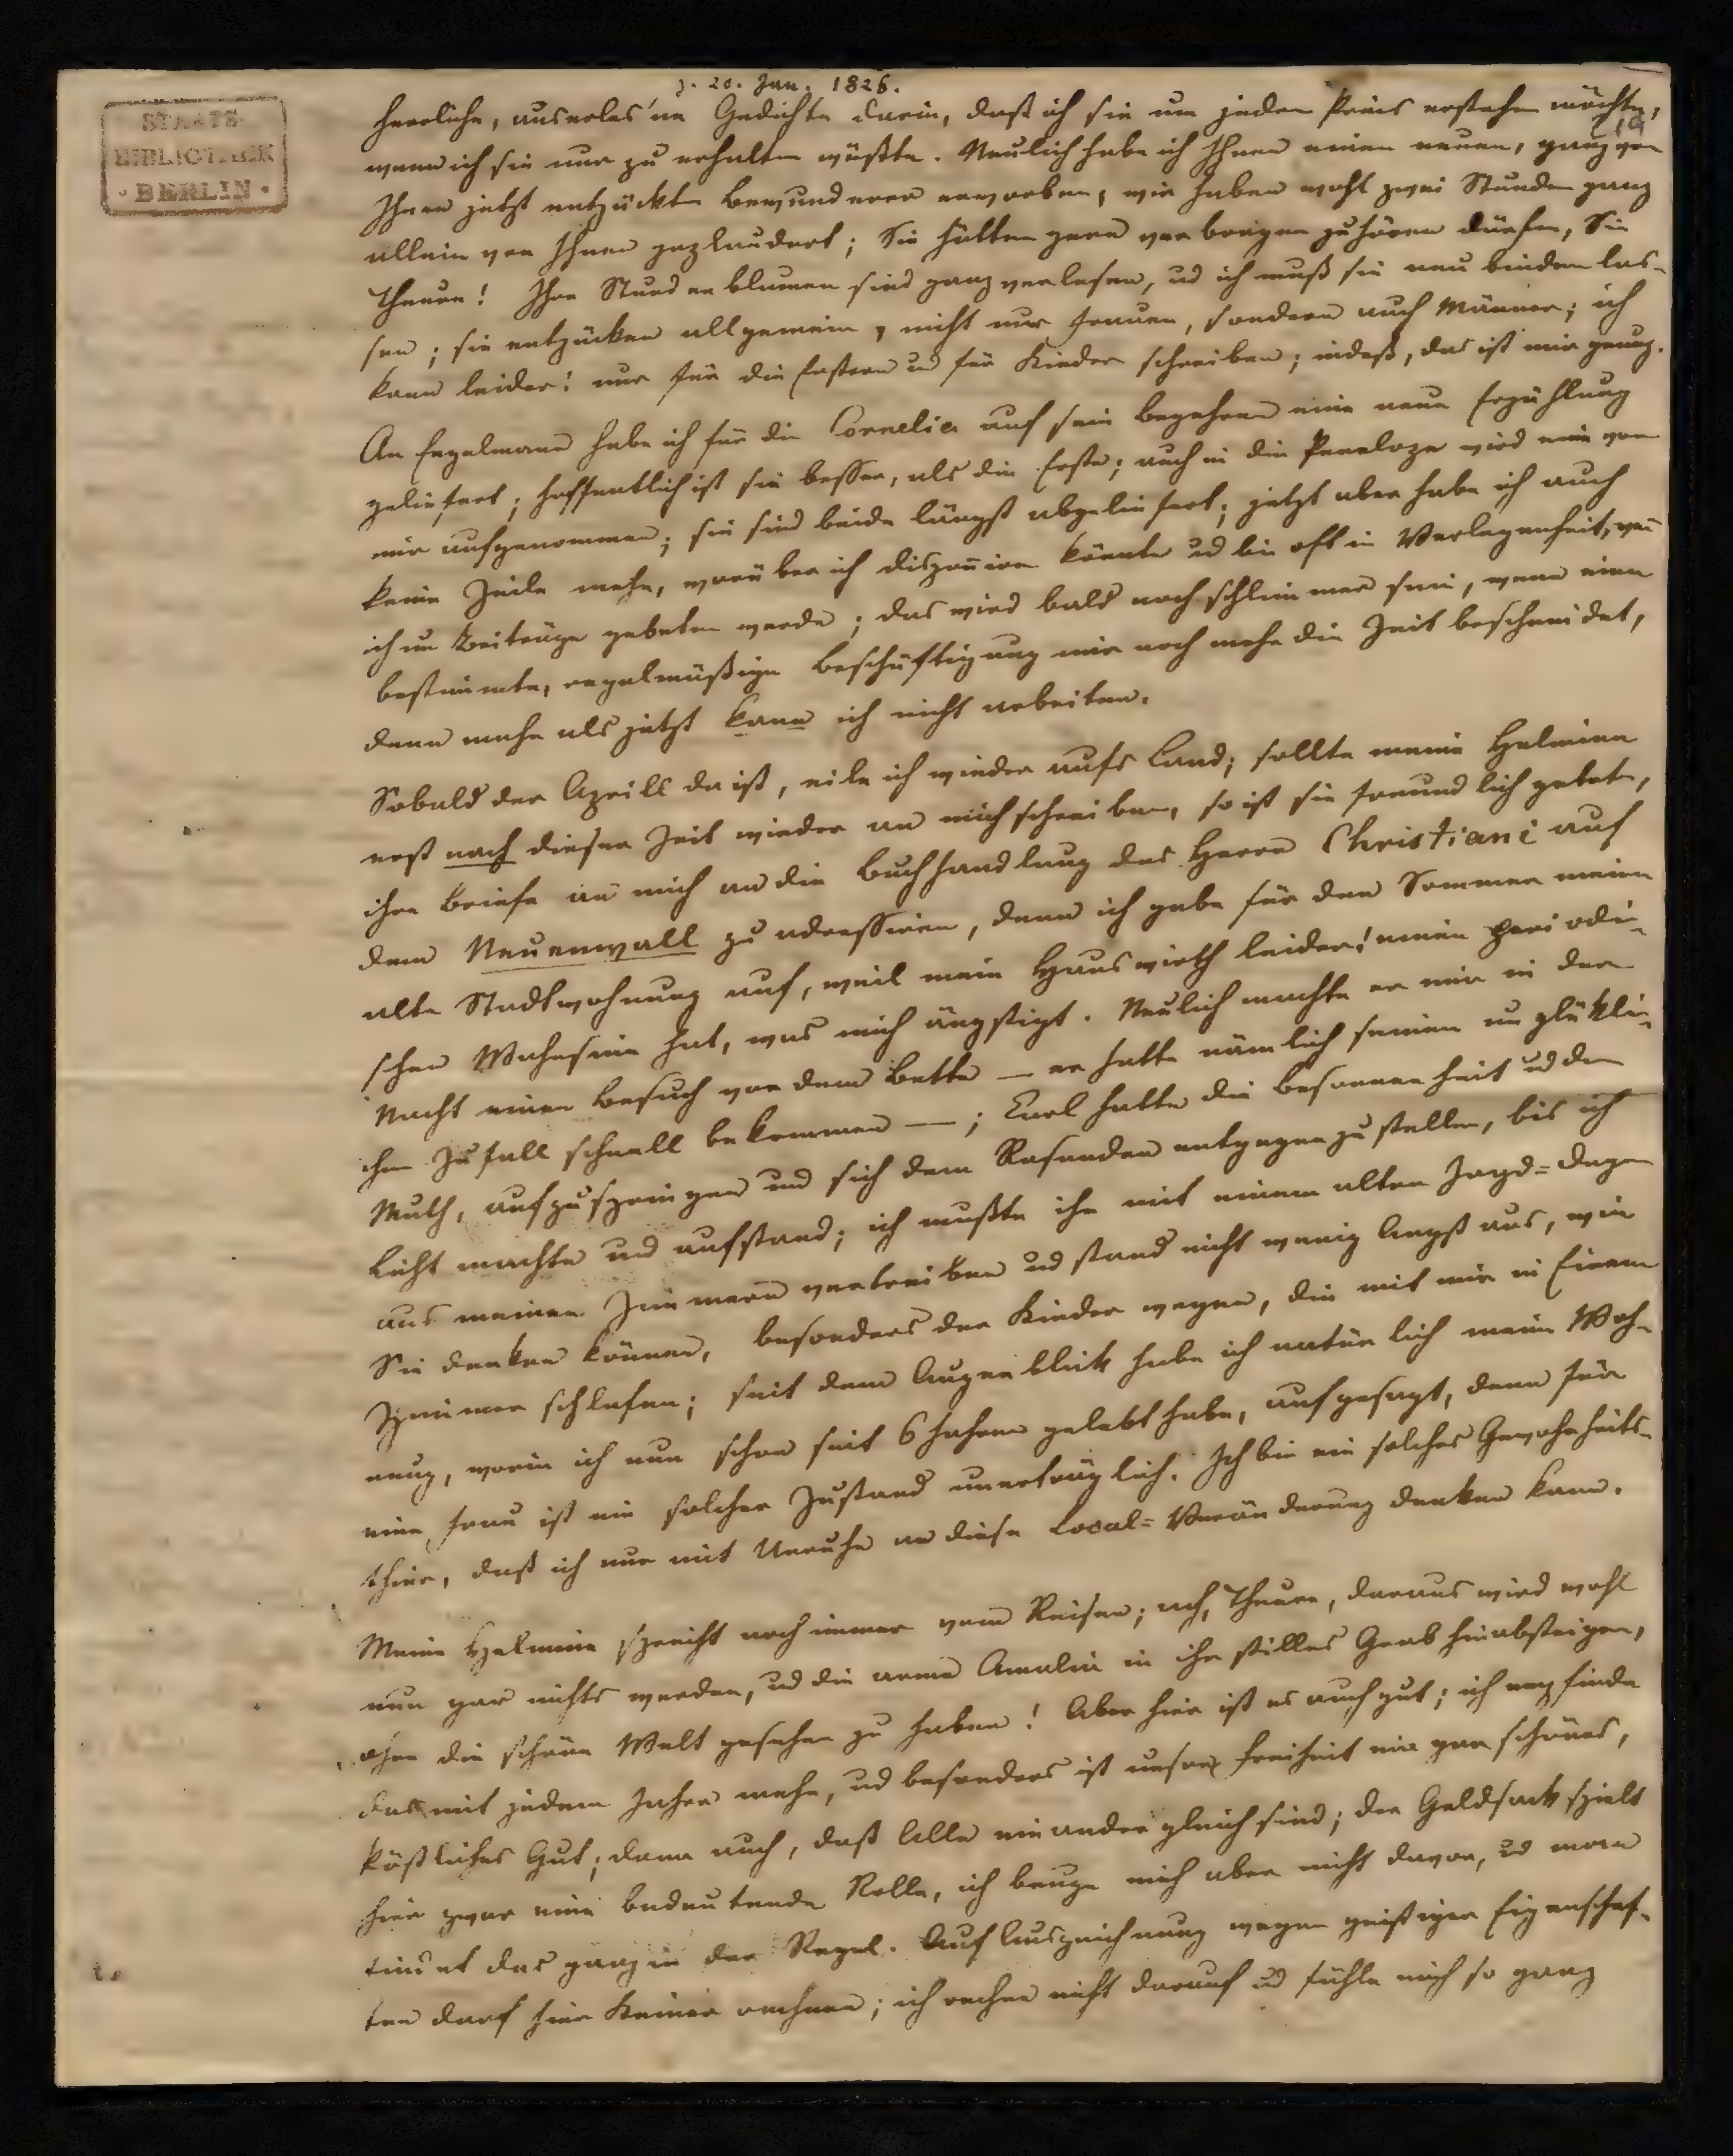 STAATS-
BIBLIOTHEK
· BERLIN ·
d. 20. Jan. 1826.
19
herrliche, auserles'ne Gedichte darin, daß ich sie um jeden Preis erstehen möchte,
wenn ich sie nur zu erhalten wüßte. Neulich habe ich Ihnen einen neuen, ganz von
Ihnen jetzt entzückten Bewunderer erworben; wir haben wohl zwei Stunden ganz
allein von Ihnen geplaudert; Sie hätten gern verborgen zuhören dürfen, Sie
Theure! Ihre Stundenblumen sind ganz verlesen, ud ich muß sie neu binden las-
sen; sie entzücken allgemein, nicht nur Frauen, sondern auch Männer; ich
kann leider! nur für die Erstern ud für Kinder schreiben; indeß, das ist mir genug.
An Engelmann habe ich für die Cornelia auf sein Begehren eine neue Erzählung
geliefert; hoffentlich ist sie besser, als die Erste; auch in die Penelope wird eine von
mir aufgenommen; sie sind beide längst abgeliefert; jetzt aber habe ich auch
keine Zeile mehr, worüber ich disponiren könnte ud bin oft in Verlegenheit, wenn
ich um Beiträge gebeten werde; das wird bald noch schlimmer sein, wenn eine
bestimmte, regelmäßige Beschäftigung mir noch mehr die Zeit beschneidet,
denn mehr als jetzt kann ich nicht arbeiten.
Sobald der Aprill da ist, eile ich wieder aufs Land; sollte meine Helmina
erst nach dieser Zeit wieder an mich schreiben, so ist sie freundlich gebeten,
ihre Briefe an mich an die Buchhandlung des Herrn Christiani auf
dem Neuenwall zu adressiren, denn ich gebe für den Sommer meine
alte Stadtwohnung auf, weil mein Hauswirth leider! einen periodi-
schen Wahnsinn hat, was mich ängstigt. Neulich machte er mir in der
Nacht einen Besuch vor dem Bette — er hatte nämlich seinen unglükli-
chen Zufall schnell bekommen —; Carl hatte die Besonnenheit ud den
Muth, aufzuspringen und sich dem Rasenden entgegenzustellen, bis ich
Licht machte und aufstand; ich mußte ihn mit einem alten Jagd=Degen
aus meinen Zimmern vertreiben ud stand nicht wenig Angst aus, wie
Sie denken können, besonders der Kinder wegen, die mit mir in Einem
Zimmer schlafen; seit dem Augenblick habe ich natürlich meine Woh-
nung, worin ich nun schon seit 6 Jahren gelebt habe, aufgesagt, denn für
eine Frau ist ein solcher Zustand unerträglich. Ich bin ein solches Gewohnheits-
thier, daß ich nur mit Unruhe an diese Local=Veränderung denken kann.
Meine Helmine spricht noch immer vom Reisen; ach, Theure, daraus wird wohl
nun gar nichts werden, ud die arme Amalia in ihr stilles Grab hinabsteigen,
ohne die schöne Welt gesehen zu haben! Aber hier ist es auch gut; ich empfinde
das mit jedem Jahre mehr, ud besonders ist unsre Freiheit ein gar schönes,
köstliches Gut; dann auch, daß Alle einander gleich sind; der Geldsack spielt
hier zwar eine bedeutende Rolle, ich beuge mich aber nicht davor, ud man
findet das ganz in der Regel. Auf Auszeichnung wegen geistiger Eigenschaf-
ten darf hier Keiner rechnen; ich rechne nicht darauf ud fühle mich so ganz